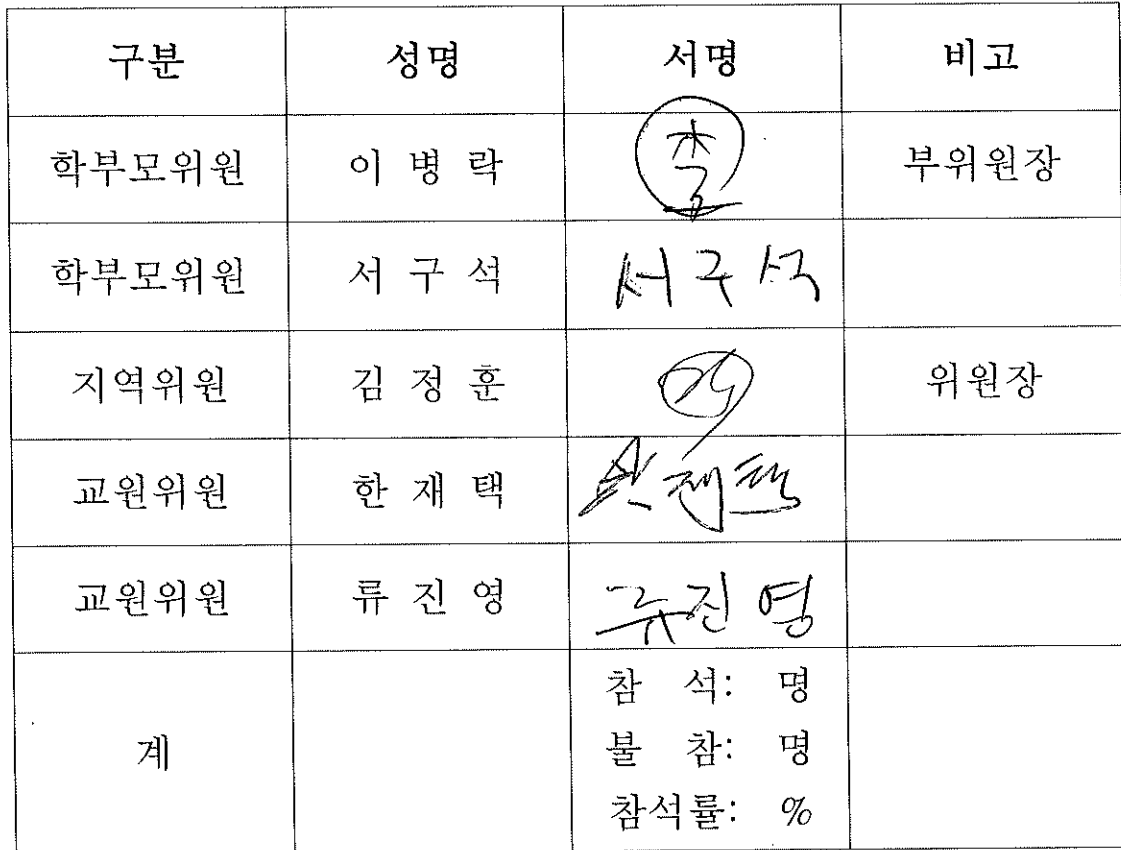 구분 성명 서명 비고
학부모위원 이 병 락 부위원장
학부모위원 서 구 석 서구석
지역위원 김 정 훈 위원장
교원위원 한 재 택 한재택
교원위원 류 진 영 류진영
계
참 석: 명
불 참: 명
참석률: %